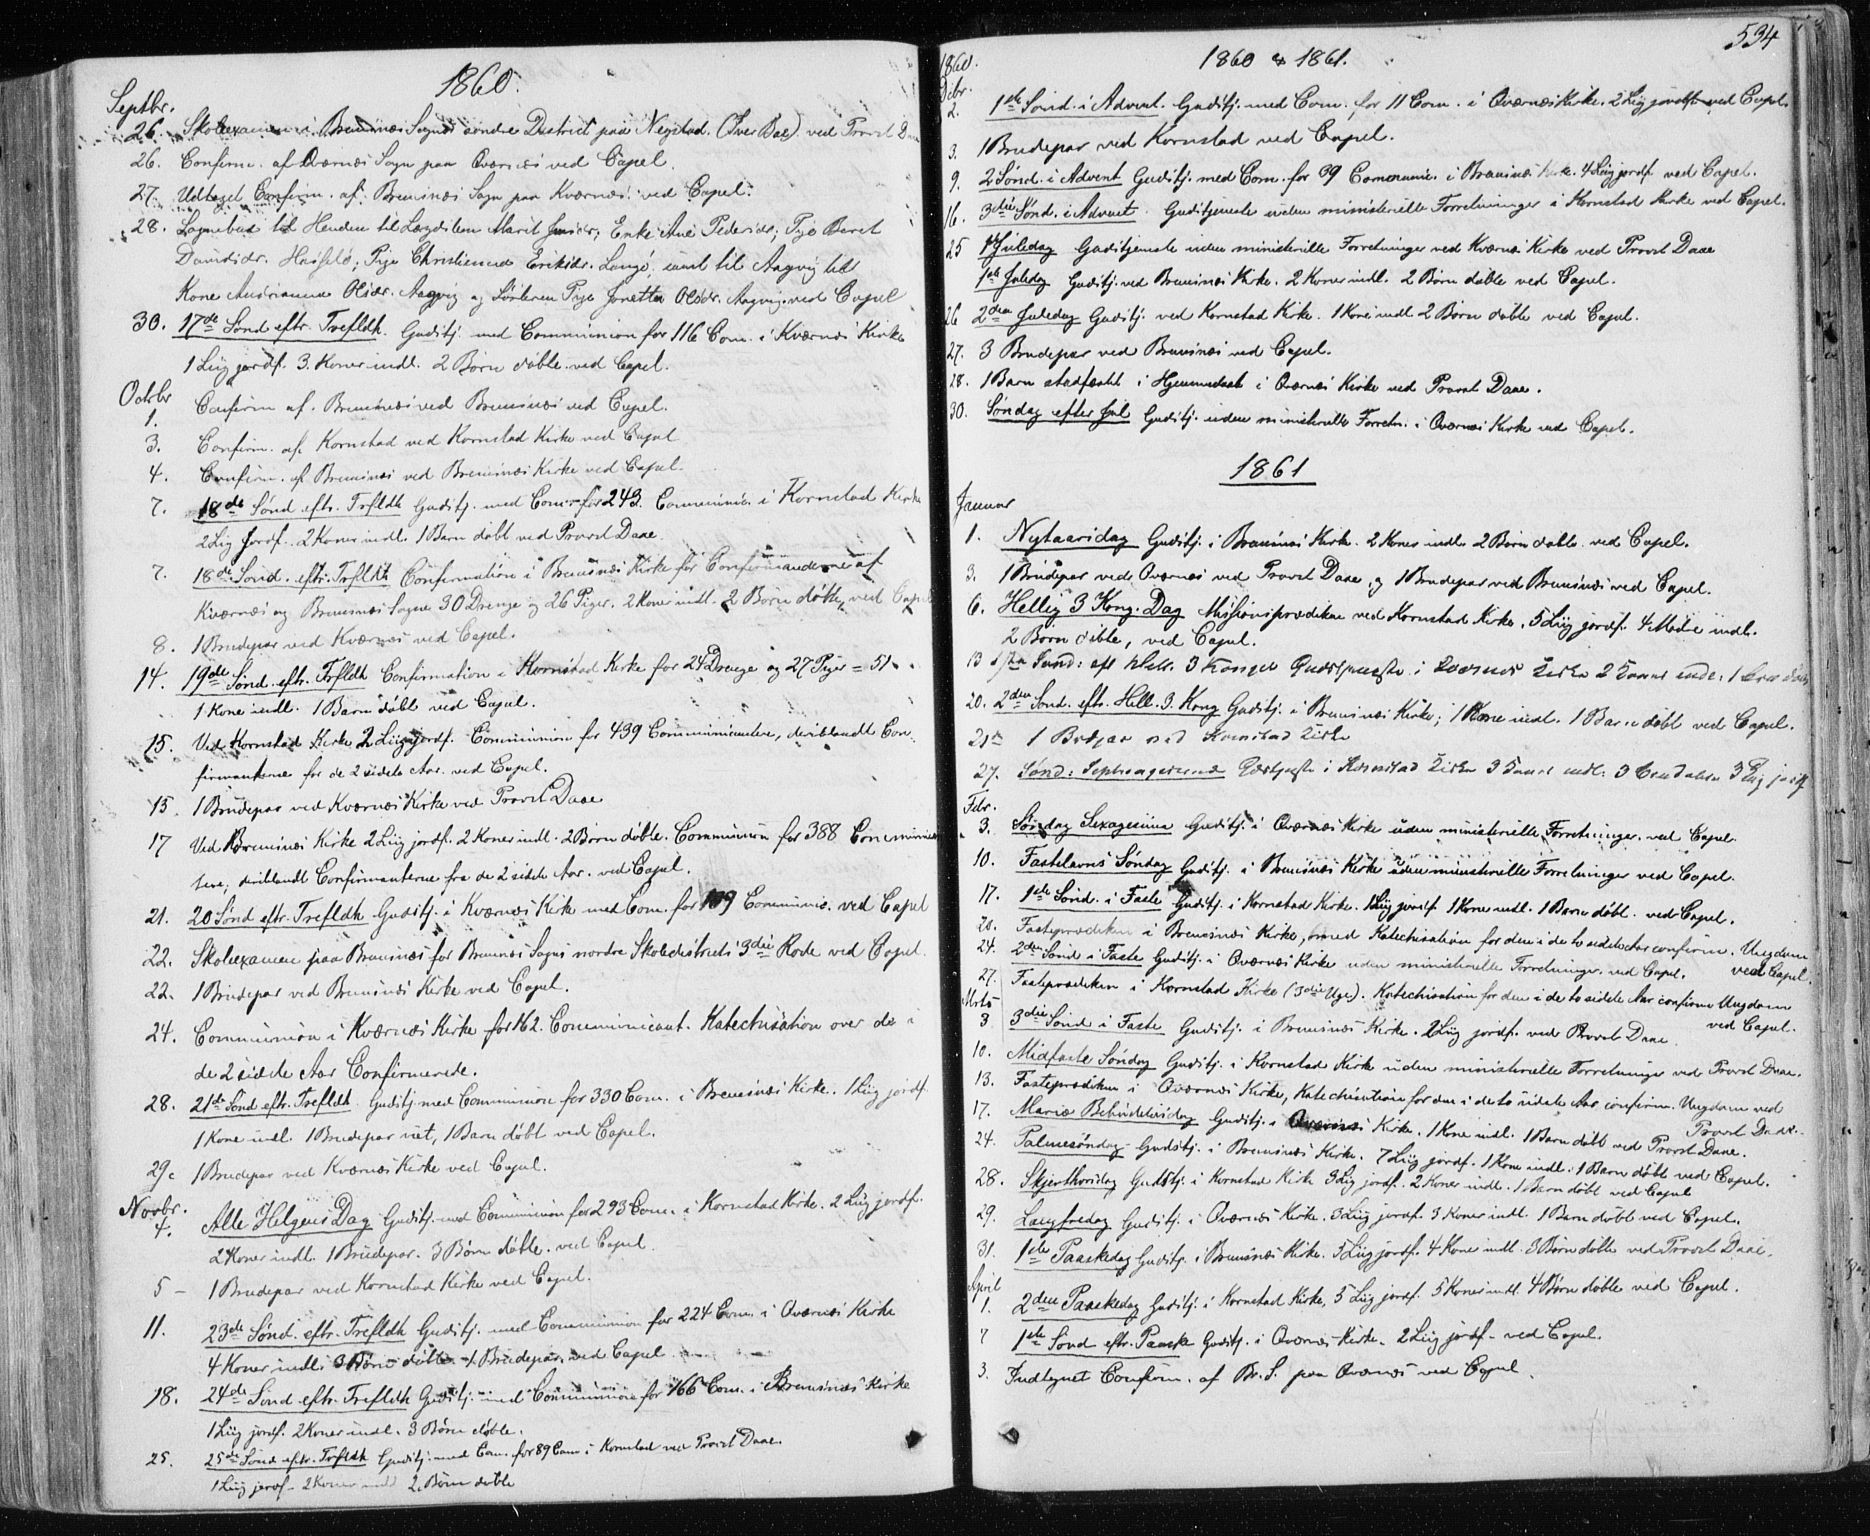 1860.
Septbr.
26. Skoleexamen i Bremsnæs Sogns søndre District paa Negstad. (Øver Bae) ved Provst
26. Confirm. af Qværnæs Sogn paa Qværnæs ved Capel.
27. Udtaget Confirm. af Bremsnæs Sogn paa Kværnæs ved Capel.
28. Sognebud til Henden til Lægdslem Marit ; Enke Ane Pedersdr; Pige Beret
Davidsdr. Hasselø; Pige Christianna Eriksdr. Langø, samt til Aagvig til
Kone Andrianna Olsdr. Aagvig og Pige Jonetta Olsdr. Aagvig. ved Capel
30. 17de Sønd eftr. Trefldh. Gudstj. med Communion for 116 Com. i Kværnæs Kirke
1 Liig jordf. 3. Koner indl. 2 Børn døbte. ved Capel.
Octbr
1. Confirm af. Bremsnæs ved Bremsnæs ved Capel.
3. Confirm. af. Kornstad ved Kornstad Kirke ved Capel
4. Confirm. af Bremsnæs ved Bremsnæs Kirke ved Capel.
7. 18de Sønd. eftr. Trefldh Gudstj. med Com. for 243. Communic. i Kornstad Kirke
2 Lig Jordf. 2 Koner indl. 1 Barn døbt ved Provst Daae.
7. 18de Sønd. eftr. Trfldh Confirmation i Bremsnæs Kirke for Confirmanderne af
Kværnæs og Bremsnæs Sogne 30 Drenge og 26 Piger. 2 Koner indl. 2 Børn døbte, ved Capel
8. 1 Brudepar ved Kværnæs ved Capel.
14. 19de Sønd. eftr. Trfldh Confirmation i Kornstad Kirke for 24 Drenge og 27 Piger = 51.
1 Kone indl. 1 Barn døbt ved Capel.
15. Ved Kornstad Kirke 2 Liig jordf. Communion for 439 Communicantere, deriblandt Con-
firmanterne for de 2 sidste Aar. ved Capel.
15. 1 Brudepar ved Kværnæs Kirke ved Provst Daae
17 Ved Bremsnæs Kirke 2 Liig jordf. 2 Koner indl. 2 Børn døbte. Communion for 388 Communican-
tere, deriblandt Confirmanterne fra de 2 sidste Aar. ved Capel.
21. 20 Sønd eftr. Trefldh Gudstj. i Kværnæs Kirke med Com. for 109 Communic. ved Capel
22. Skoleexamen paa Bremsnæs for Bremsnæs Sogns nordre Skoledistricts 3die Rode ved Capel.
22. 1 Brudepar ved Bremsnæs Kirke ved Capel.
24. Communion i Kværnæs Kirke for 162. Communicant. Katechisation over de i
de 2 sidste Aar Confirmerede.
28. 21de Sønd eftr. Trefldh. Gudstj. med Communion for 330 Com. i Bremsnæs Kirke. 1 Liig jordf.
1 Kone indl. 1 Brudepar viet, 1 Barn døbt ved Capel.
29. 1 Brudepar ved Kværnæs Kirke ved Capel.
Novbr.
4. Alle Helgens Dag Gudstj. med Communion for 293 Com. i Kornstad Kirke. 2 Liig jordf.
2 Koner indl. 1 Brudepar. 3 Børn døbte. ved Capel.
5 – 1 Brudepar ved Kornstad Kirke ved Capel.
11. 23de Sønd. eftr. Trefldh Gudstj. med Communion for 224 Com. i Qværnæs Kirke
4 Koner indl. 3 Børn døbte. 1 Brudepar. ved Capel
18. 24de Sønd eftr. Trefldh Gudstj. med Communion for 166 Com. i Bremsnæs Kirke
1 Liig jordf. 2 Koner indl. 3 Børn døbte.
25. 25de Sønd eftr. Trfldh Gudstj. med Com. for 89 Com i Kornstad ved Provst Daae.
1 Liig jordf. 2 Koner indl 2 Børn døbte
534
1860 & 1861.
1860.
Dcbr.
2. 1ste Sønd. i Advent. Gudstj. med Com. for 11 Com. i Qværnæs Kirke. 2 Liig jordf. ved Capel.
3. 1 Brudepar ved Kornstad ved Capel.
9. 2 Sønd. i Advent Gudstj. med Com. for 39 Communic. i Bremsnæs Kirke. 4 Liig jordf. ved Capel.
16. 3die Sønd. i Advent. Gudstjeneste uden ministerielle Forretninger i Kornstad Kirke ved Capel.
25 1 Juledag Gudstjeneste uden ministerielle Forretninger ved Kværnæs Kirke ved Provst Daae
1ste Juledag Gudstj. ved Bremsnæs Kirke. 2 Koner indl. 2 Børn døbte ved Capel.
26 2den Juledag Gudstj. ved Kornstad Kirke. 1 Kone indl. 2 Børn døbte ved Capel.
27. 3 Brudepar ved Bremsnæs ved Capel.
28. 1 Barn stadfæstet i Hjemmedaab i Qværnæs Kirke ved Provst Daae.
30. Søndag efter Jul Gudstj. uden ministerielle Forretn. i Qværnæs Kirke ved Capel.
1861
Januar
1. Nytaarsdag Gudstj. i Bremsnæs Kirke. 2 Koner indl. 2 Børn døbte. ved Capel.
3. 1 Brudepar ved Qværnæs ved Provst Daae, og 1 Brudepar ved Bremsnæs ved Capel.
6. Hellig 3 Kong. Dag Missionsprædiken ved Kornstad Kirke, 5 Liig jordf. 4 Mødre indl.
2 Børn døbte, ved Capel.
13 1ste Sønd: eft Hell. 3 Konger Gudstjeneste i Qværnæs Kirke 2 Koner indl: 1 Barn døbt
20. 2den Sønd. eftr. Hell. 3. Kong Gudstj. i Bremsnæs Kirke; 1 Kone indl. 1 Barn døbt ved Capel.
21de 1 Brudpar ved Kornstad Kirke
27. Sønd: Septuagesima Gudstjeneste i Kornstad Kirke 3 Koner indl: 3 Børn døbte 3 Lig jordf
Febr.
3. Søndag Sexagesima Gudstj. i Qværnæs Kirke uden ministerielle Forretninger. ved Capel.
10. Fastelavns Søndag Gudstj. i Bremsnæs Kirke uden ministerielle Forretninger ved Capel.
17. 1ste Sønd. i Faste Gudstj. i Kornstad Kirke. 1 Liig jordf. 1 Kone indl. 1 Barn døbt. ved Capel.
20. Fasteprædiken i Bremsnæs Kirke, med Katechisation for den i de to sidste Aar confirm. Ungdom
ved Capel.
24. 2den Sønd i Faste Gudstj. i Qværnæs Kirke uden ministerielle Forretninger. ved Capel.
27. Fasteprædiken i Kornstad Kirke (3die Uge). Katechisation for den i de to sidste Aar confirm Ungdom
ved Capel.
Mrts
3 3die Sønd i Faste Gudstj. i Bremsnæs Kirke. 2 Liig jordf. ved Provst Daae
10. Midfaste Søndag Gudstj. i Kornstad Kirke uden ministerielle Forretninger ved Provst Daae.
13. Fasteprædiken i Qværnæs Kirke, Katechisation for den i de to sidste Aar confirm. Ungdom ved
Provst Daae.
17. Mariæ Bebudelsesdag Gudstj. i Qværnæs Kirke. 1 Kone indl. 1 Barn døbt ved Provst Daae.
24. Palmesøndag Gudstj. i Bremsnæs Kirke. 7 Liig jordf. 1 Kone indl. 1 Barn døbt ved Capel.
28. Skjerthorsdag Gudstj. i Kornstad Kirke 3 Lig jordf. 2 Koner indl. 1 Barn døbt ved Capel
29. Langfredag Gudstj. i Qværnæs Kirke. 3 Liig jordf. 3 Koner indl. 1 Barn døbt ved Capel.
31. 1ste Paaskedag Gudstj. i Bremsnæs Kirke. 5 Liig jordf. 4 Kone indl. 3 Børn døbte ved Provst Daae.
April
1. 2den Paaskedag Gudstj. i Kornstad Kirke. 5 Liig jordf. 5 Koner indl. 4 Børn døbte ved Capel.
7 1ste Sønd eftr. Paaske Gudstj. i Qværnæs Kirke. 2 Liig jordf. ved Capel.
3. Indtegnet Confirm. af Br. S. paa Qværnæs ved Capel.